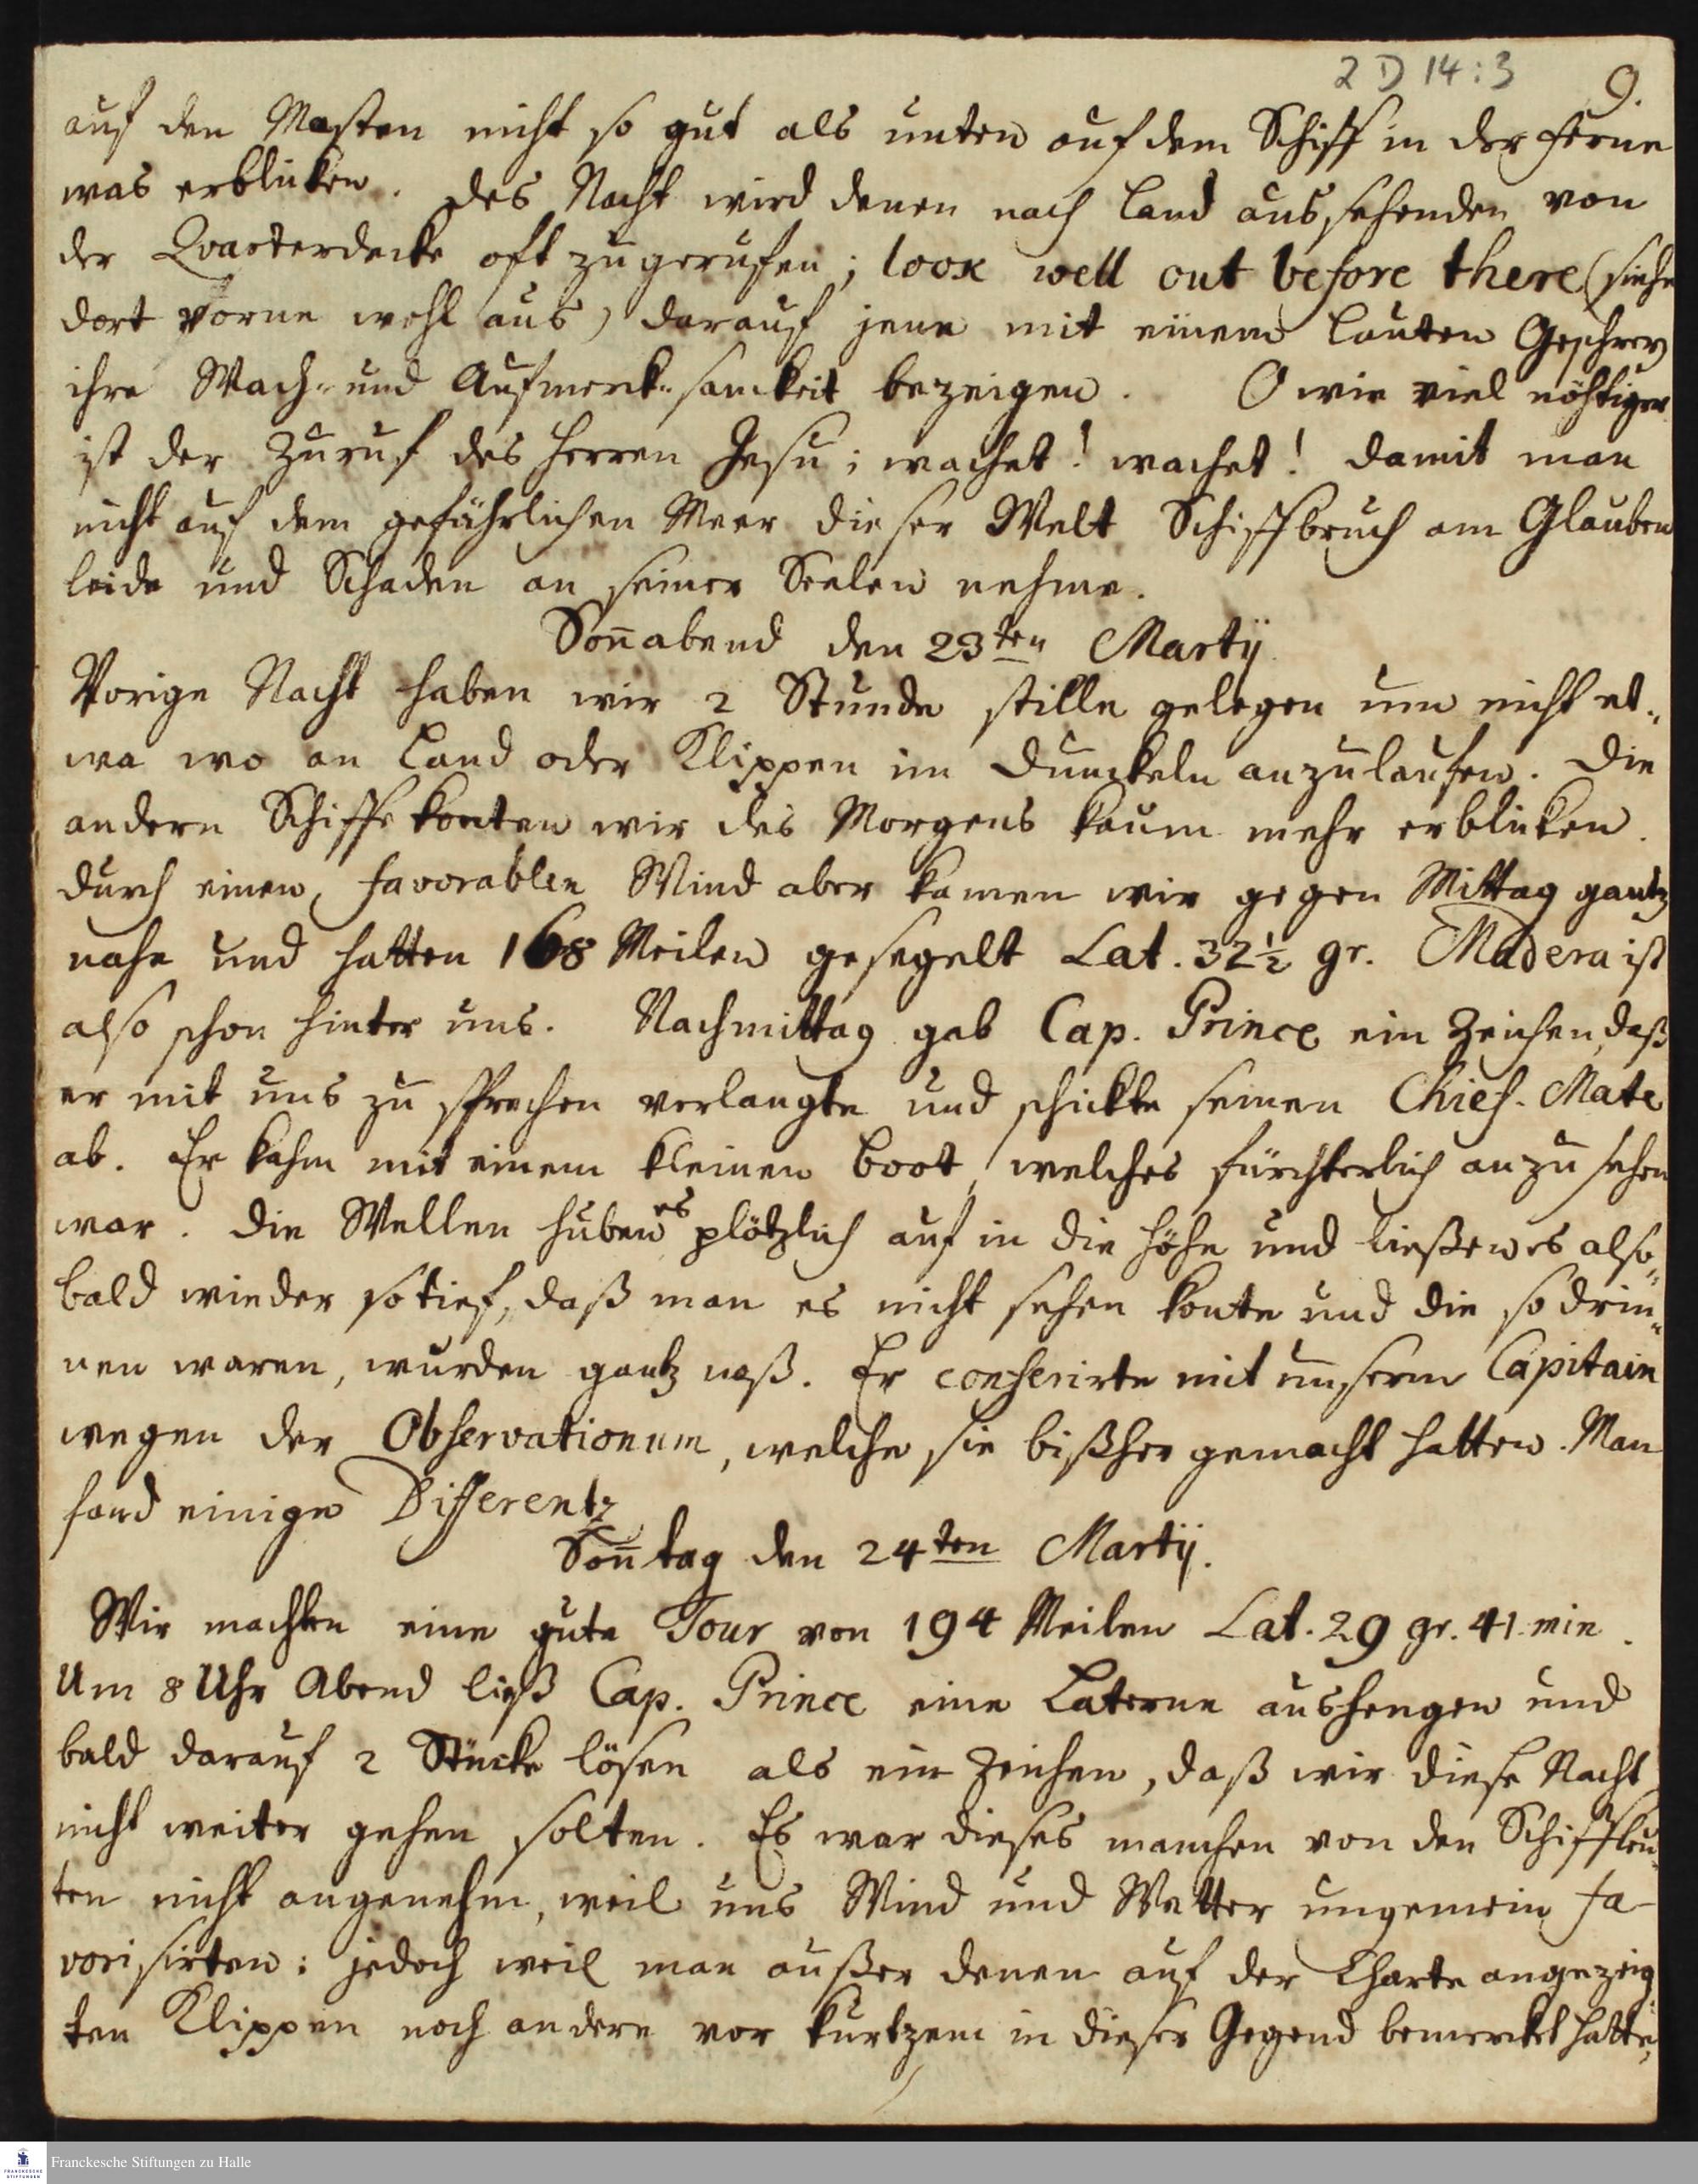 2 D 14 : 3
9.
auf den Masten nicht so gut als unten auf dem Schiff in der Ferne
was erblicken. Des Nacht wird denen nach Land aussehenden von
der Qvarterdecke oft zugerufen; look well out before there (siehe
dort vorne wohl aus) darauf jene mit einem lauten Geschrey
ihre Wach- und Aufmerck-samkeit bezeigen. O wie viel nöhtiger
ist der Zuruf des Herren Jesu; wachet! wachet! damit man
nicht auf dem gefährlichen Meer dieser Welt Schiffbruch am Glauben
leide und Schaden an seiner Seelen nehme.
Son̄abend den 23ten Martij
Vorige Nacht haben wir 2 Stunde stille gelegen um nicht et-
wa wo an Land oder Klippen im Dunckeln anzulaufen. Die
andern Schiffe konten wir des Morgens kaum mehr erblicken.
Durch einen favorablen Wind aber kamen wir gegen Mittag gantz
nahe und hatten 168 Meilen gesegelt Lat. 32½ gr. Madera ist
also schon hinter uns. Nachmittag gab Cap. Prince ein Zeichen, daß
er mit uns zu sprechen verlangte und schickte seinen Chief-Mate
ab. Er kahm mit einem kleinen Boot, welches fürchterlich anzusehen
war. Die Wellen huben es plötzlich auf in die Höhe und ließen es also-
bald wieder so tief, daß man es nicht sehen konte und die so drin-
nen waren, wurden gantz naß. Er conferirte mit unserm Capitain
wegen der Observationum, welche sie bißher gemacht hatten. Man
fand einige Differentz
Son̄tag den 24ten Martij.
Wir machten eine gute Tour von 194 Meilen Lat. 29 gr. 41 min.
Um 8 Uhr Abend ließ Cap. Prince eine Laterne aushengen und
bald darauf 2 Stücke lösen als ein Zeichen, daß wir diese Nacht
nicht weiter gehen solten. Es war dieses manchen von den Schiffleu-
ten nicht angenehm, weil uns Wind und Wetter ungemein fa-
vorisirten: jedoch weil man außer denen auf der Charte angezeig-
ten Klippen noch andere vor kurtzem in dieser Gegend bemercket hatte,
FRANCKESCHE STIFTUNGEN
Franckesche Stiftungen zu Halle